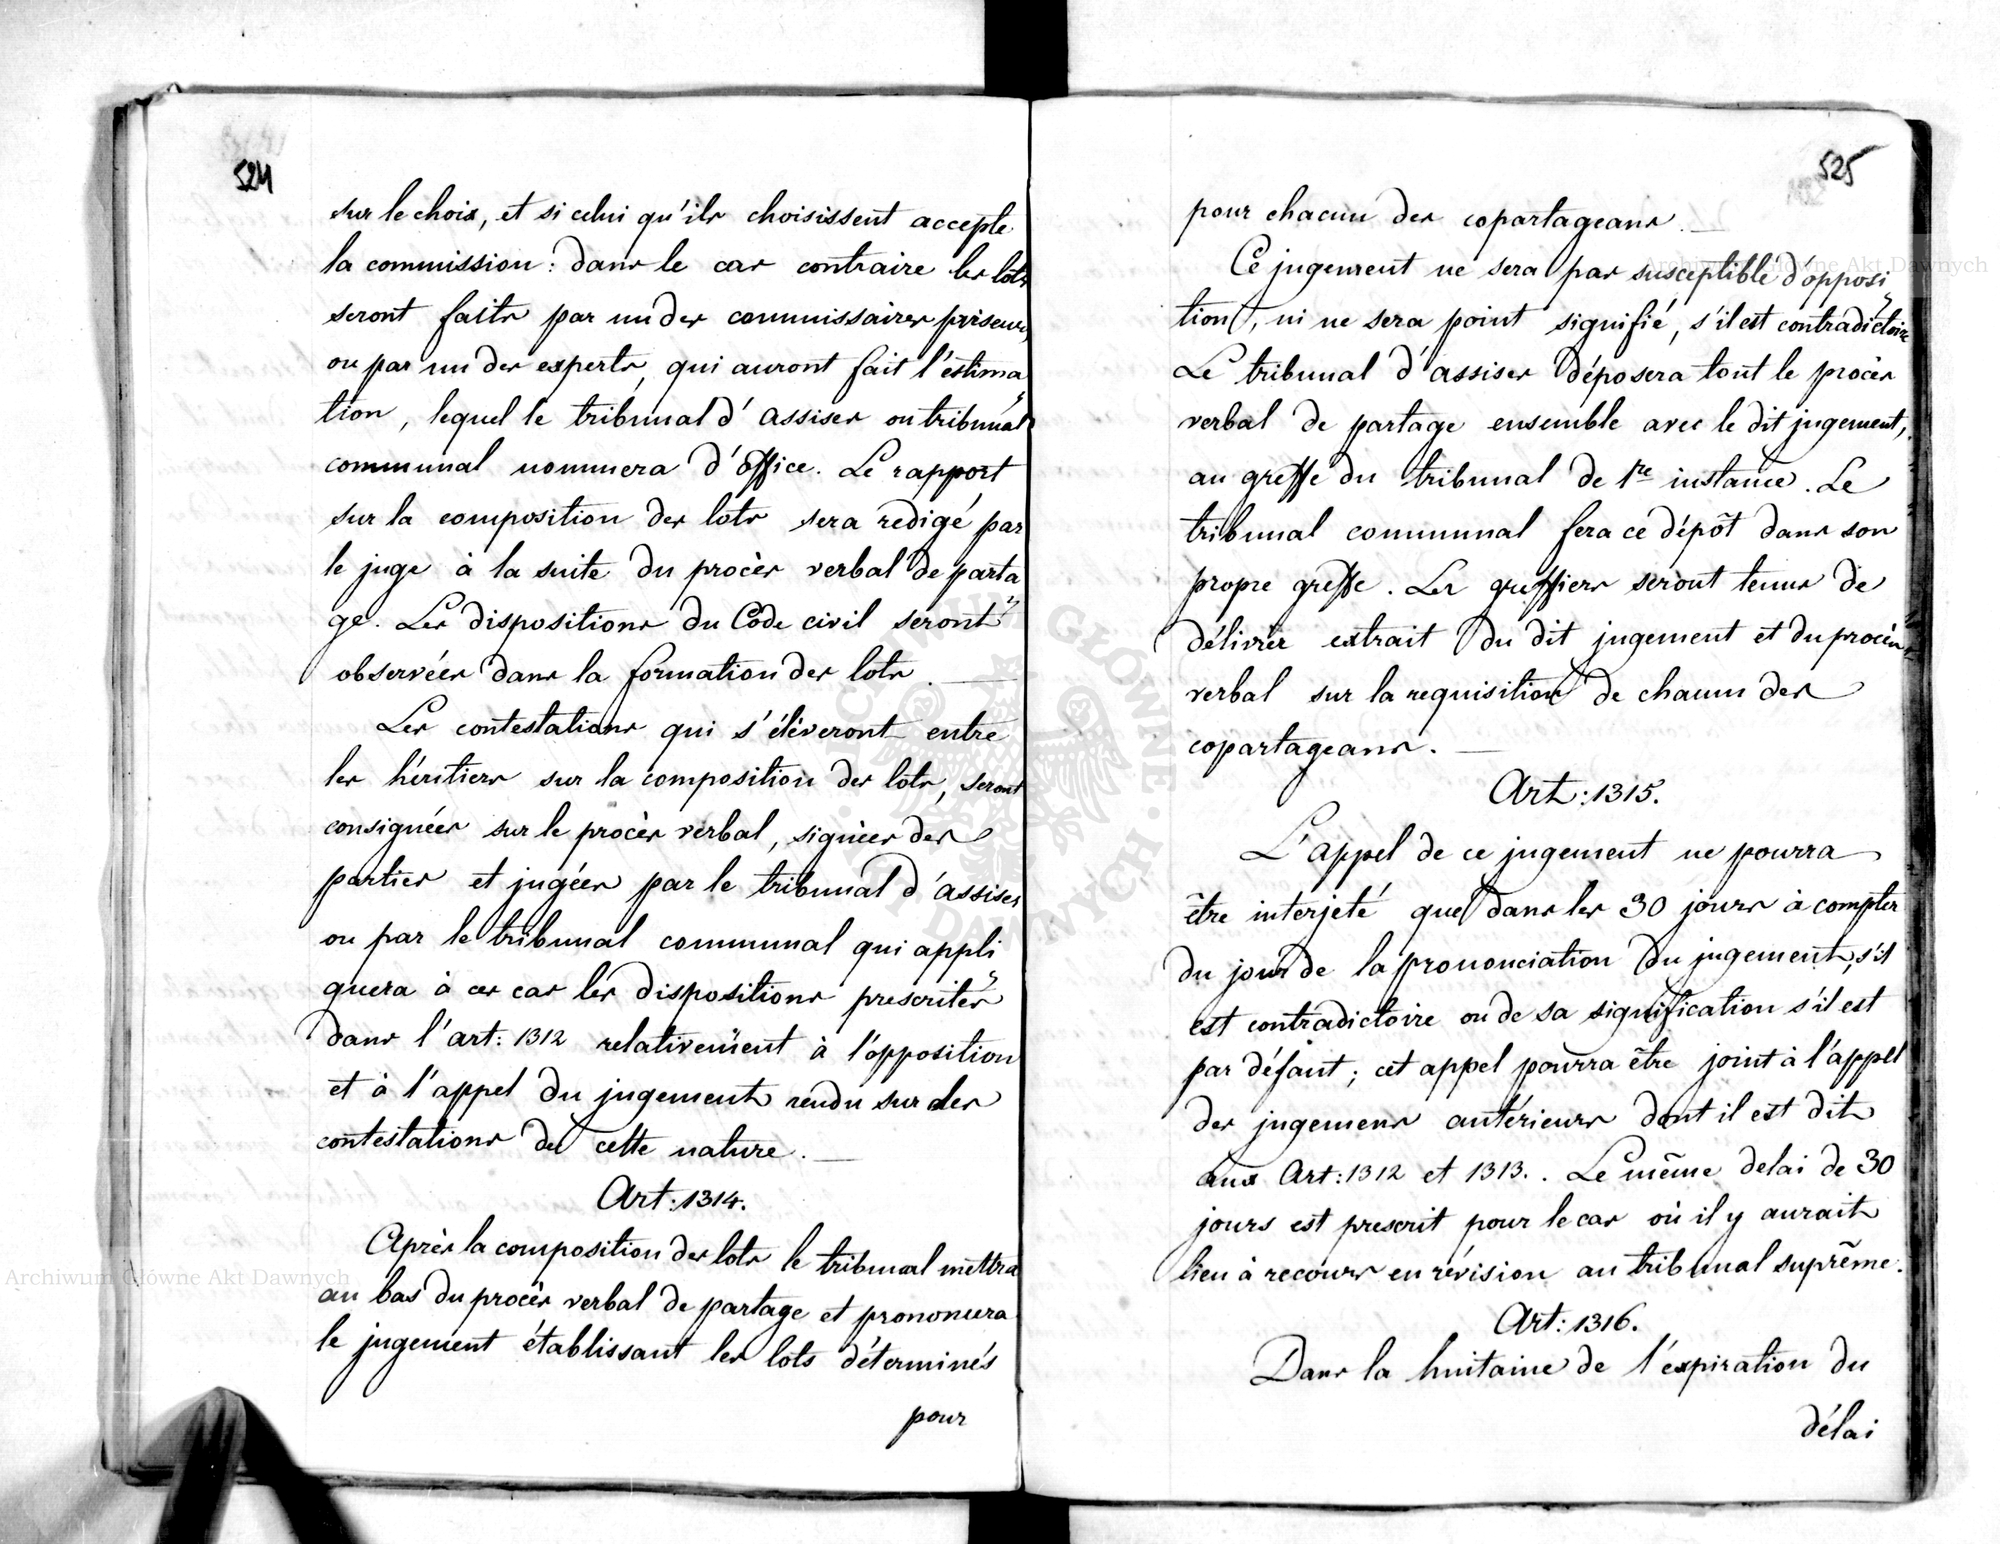 524
sur le choix, et si celui qu'ils choisissent accepte
la commission : dans le cas contraire les lots
seront faits par un des commissaires priseurs,
ou par un des experts, qui auront fait l'estima
tion, lequel le tribunal d'assises ou tribunal
communal nommera d'office. Le rapport
sur la composition des lots sera redigé par
le juge à la suite du procès verbal de parta
ge. Les dispositions du Code civil seront
observées dans la formation des lots. —
Les contestations qui s'élèveront entre
les héritiers sur la composition des lots, seront
consignées sur le procès verbal, signées des
parties et jugées par le tribunal d'assises
ou par le tribunal communal qui appli
quera à ces cas les dispositions prescrites
dans l'art: 1312 relativement à l'opposition
et à l'appel du jugement rendu sur des
contestations de cette nature. —
Art: 1314.
Après la composition des lots le tribunal mettra
au bas du procès verbal de partage et prononcera
le jugement établissant les lots déterminés
pour
525
pour chacun des copartageans. —
Ce jugement ne sera pas susceptible d'opposi
tion, ni ne sera point signifié, s'il est contradictoire
Le tribunal d'assises déposera tout le procès
verbal de partage ensemble avec le dit jugement,
au greffe du tribunal de 1re instance. Le
tribunal communal fera ce dépôt dans son
propre greffe. Les greffiers seront tenus de
délivrer extrait du dit jugement et du procès
verbal sur la requisition de chacun des
copartageans. —
Art: 1315.
L'appel de ce jugement ne pourra
être interjeté que dans les 30 jours à compter
du jour de la prononciation du jugement, s'il
est contradictoire ou de sa signification s'il est
par défaut; cet appel pourra être joint à l'appel
des jugemens antérieurs dont il est dit
aux Art: 1312 et 1313. . Le même delai de 30
jours est prescrit pour le cas où il y aurait
lieu à recours en révision au tribunal suprême.
Art: 1316.
Dans la huitaine de l'expiration du
délai
Archiwum Główne Akt Dawnych
Archiwum Główne Akt Dawnych
ARCHIWUM GŁÓWNE AKT DAWNYCH